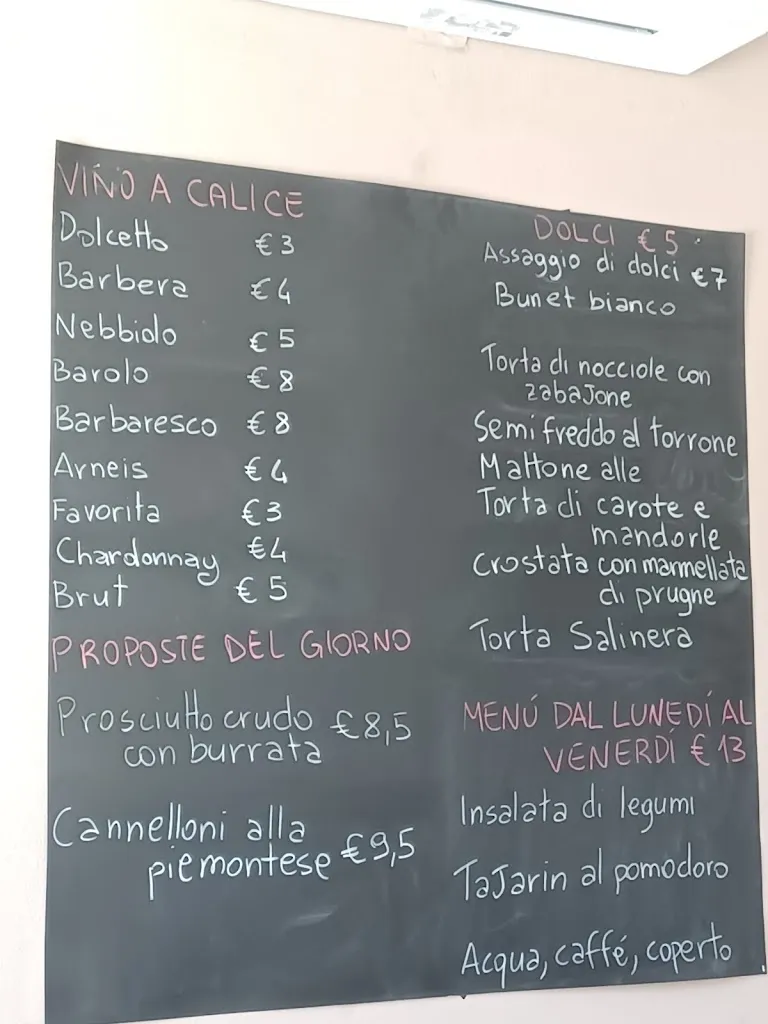 VINO A CALICE
Dolcetto €3
Barbera €4
Nebbiolo €5
Barolo €8
Barbaresco €8
Arneis €4
Favorita €3
Chardonnay €4
Brut €5
PROPOSTE DEL GIORNO
Prosciutto crudo €8,5
con burrata
Cannelloni alla
piemontese €9,5
DOLCI €5
Assaggio di dolci €7
Bunet bianco
Torta di nocciole con
zabaJone
Semifreddo al torrone
Mattone alle
Torta di carote e
mandorle
Crostata con marmellata
di prugne
Torta Salinera
MENÚ DAL LUNEDÍ AL
VENERDÍ €13
Insalata di legumi
TaJarin al pomodoro
Acqua, caffé, coperto